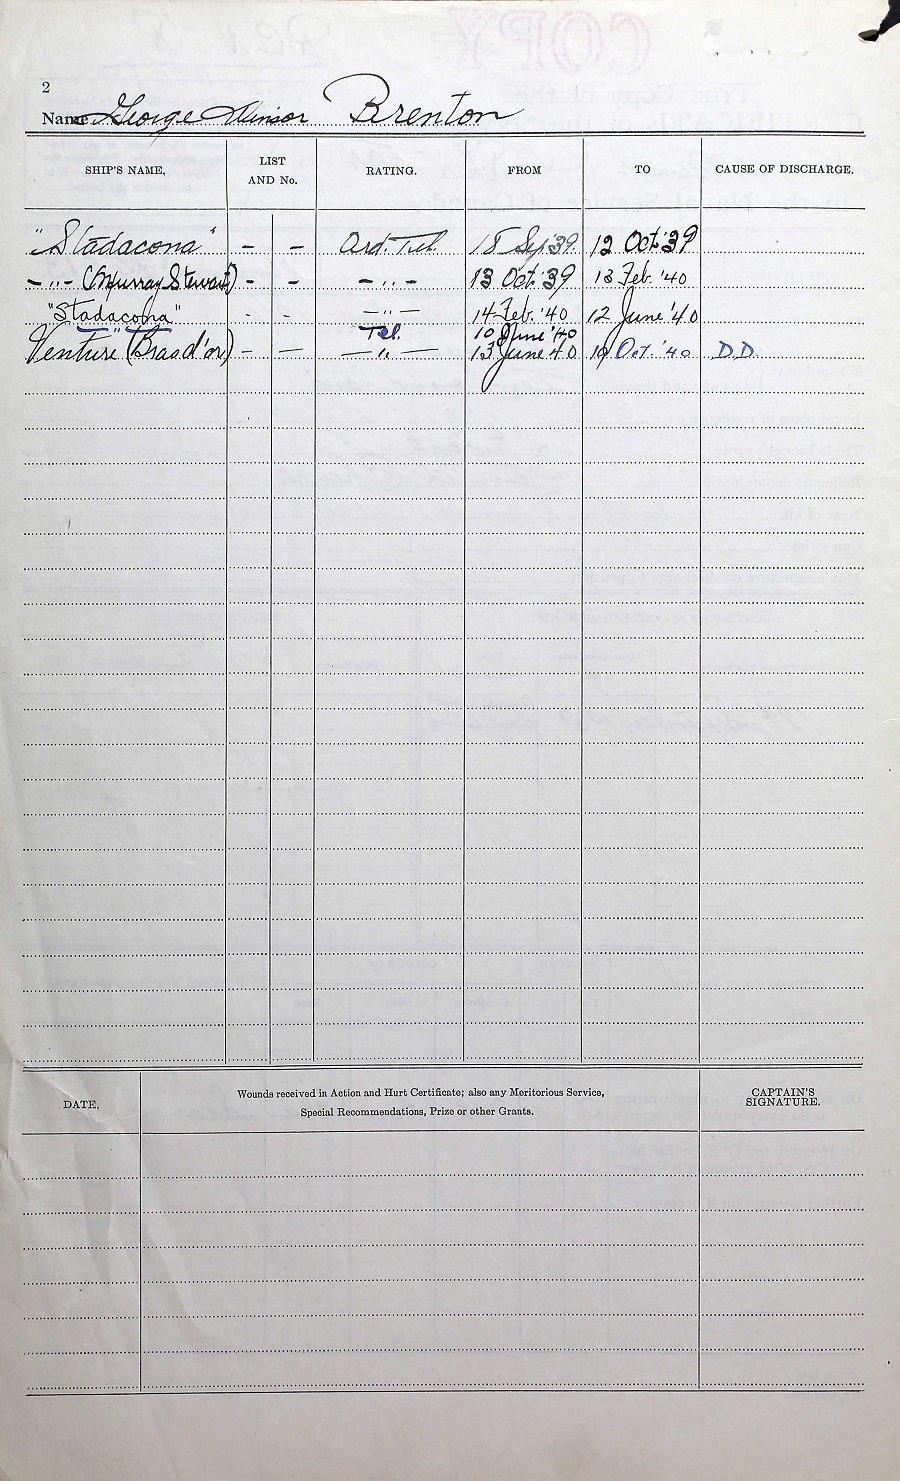 2
Name George Winsor Brenton
SHIP'S NAME. LIST AND No. RATING. FROM TO CAUSE OF DISCHARGE.
"Stadacona" - - Ord. Tel. 18 Sep '39. 12 Oct '39
- " - (Murray Stewart) - - - " - 13 Oct '39 13 Feb. '40
"Stadacona" - - - " - 14 Feb. '40 12 June '40
Tel. 10 June '40
Venture (Bras d'or) - - - " - 13 June 40 19 Oct. '40 D.D.
DATE. Wounds received in Action and Hurt Certificate; also any Meritorious Service, Special Recommendations, Prize or other Grants. CAPTAIN'S SIGNATURE.